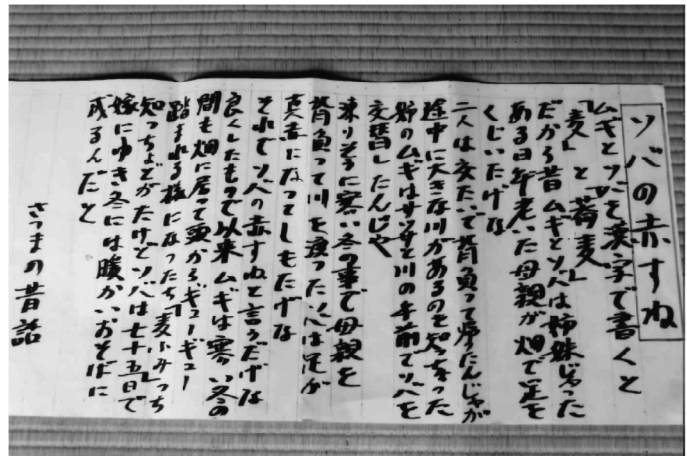 ソバの赤すね
ムギとソバを漢字で書くと
「麦」と「蕎麦」
だから昔ムギとソバは姉妹じゃった
ある日年老いた母親が畑で足を
くじいたげな
二人は交たいで背負って帰たんじゃが
途中に大きな川があるのを知っちょった
姉のムギはサッサと川の手前でソバと
交替したんじゃ
凍りそうに寒い冬の事で母親を
背負って川を渡ったソバは足が
真赤になってしもたげな
それでソバの赤すねと言うだげな
良くしたもので以来ムギは寒い冬の
間も畑に居って頭からギューギュー
踏まれる様になったち「麦ふみ」っち
知っちょどがたけどソバは七十五日で
嫁にゆき冬には暖かいおそばに
成るんだと
さつまの昔話